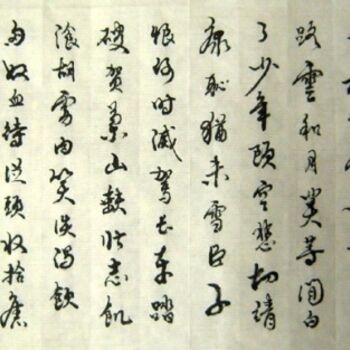 路雲和月莫等閒白
了少年頭空悲切靖
康恥猶未雪臣子
恨何時滅駕長車踏
破賀蘭山缺壯志飢
餐胡虜肉笑談渴飲
匈奴血待從頭收拾舊